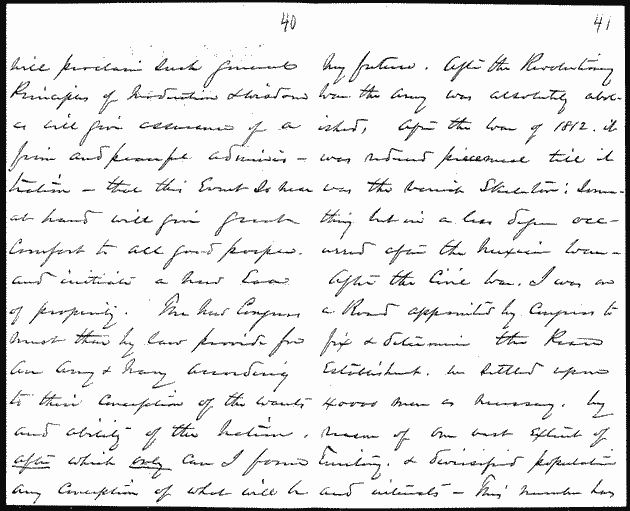 40
will proclaim such general
Principles of Moderation & wisdom
as will give assurance of a
firm and peaceful adminis-
tration - that this Event so near
at hand will give great
Comfort to all good people.
and initiate a new Era
of prosperity. The New Congress
must then by law provide for
an Army & Navy according
to their Conception of the wants
and ability of the Nation.
after which only can I form
any Conception of what will be
41
my future. After the Revolutionary
War the Army was absolutely abol-
ished, After the War of 1812. it
was reduced piecemeal till it
was the merest Skeleton: Some-
thing but in a less degree occ-
urred after the Mexican War -
After the Civil War. I was on
a Board appointed by Congress to
fix & determine the Peace
Establishment. we settled upon
40000 men as necessary. by
reason of our vast Extent of
Territory. & diversified population
and interests - This number has